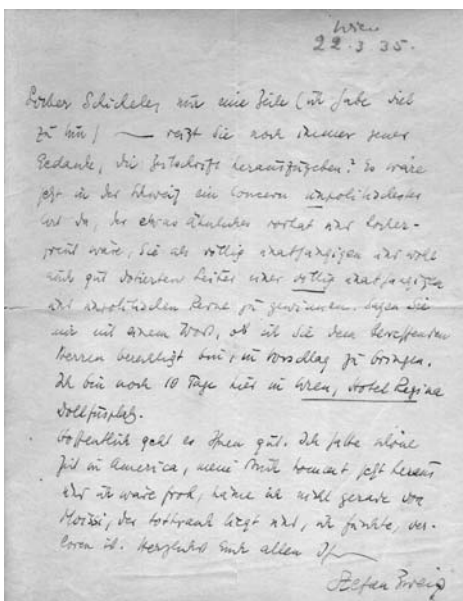 Wien
22.3 35.
Lieber Schickele, nur eine Zeile (ich habe viel
zu tun) — reizt Sie noch immer jener
Gedanke, die Zeitschrift herauszugeben? Es wäre
jetzt in der Schweiz ein Concern unpolitischester
Art da, der etwas ähnliches vorhat und
wäre, Sie als völlig unabhängigen und wohl
auch gut dotierten Leiter einer völlig unabhängigen
und unpolitischen Revue zu gewinnen. Sagen Sie
mir mit einem Wort, ob ich Sie dem betreffenden
Herren berechtigt bin, in Vorschlag zu bringen.
Ich bin noch 10 Tage hier in Wien, Hotel Regina
Dollfussplatz.
Hoffentlich geht es Ihnen gut. Ich hatte schöne
Zeit in America, mein Buch kommt jetzt heraus
und ich wäre froh, käme ich nicht gerade von
Moissi, der todkrank liegt und, ich fürchte, ver-
loren ist. Herzlichst Euch allen Ihr
Stefan Zweig